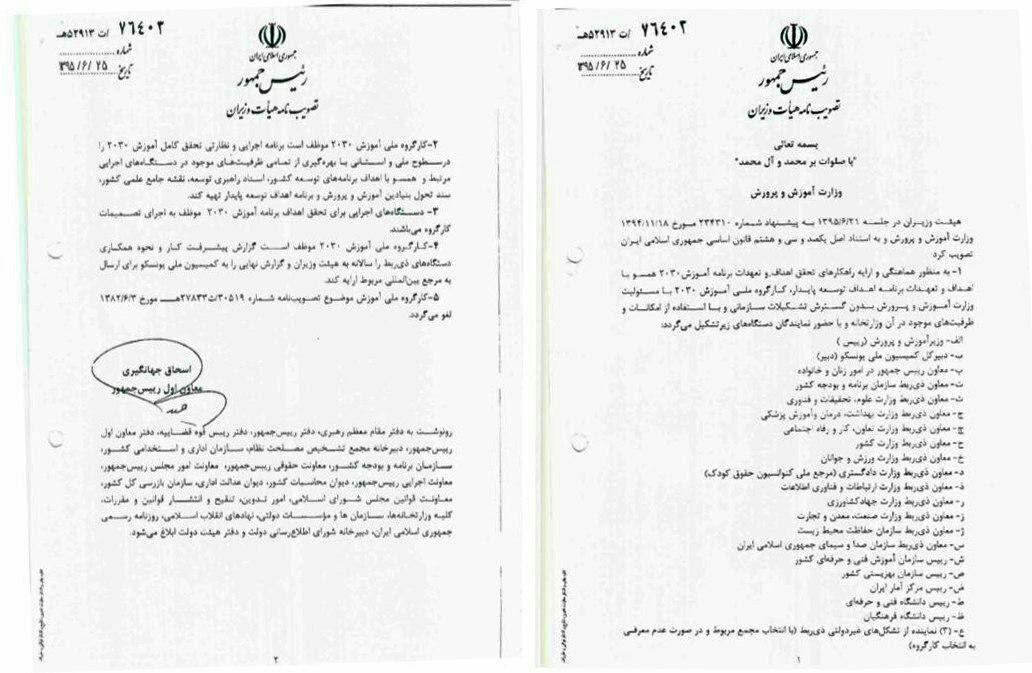 ۷۶۴۰۲ /ت ۵۲۹۱۳هـ
شماره
۱۳۹۵/۶/۲۵
تاریخ
جمهوری اسلامی ایران
رئیس جمهور
تصویب نامه هیأت وزیران
بسمه تعالی
"با صلوات بر محمد و آل محمد"
وزارت آموزش و پرورش
هیئت وزیران در جلسه ۱۳۹۵/۶/۲۱ به پیشنهاد شماره ۲۳۴۳۱۰ مورخ ۱۳۹۴/۱۱/۱۸
وزارت آموزش و پرورش و به استناد اصل یکصد و سی و هشتم قانون اساسی جمهوری اسلامی ایران
تصویب کرد
۱- به منظور هماهنگی و ارایه راهکارهای تحقق اهداف و تعهدات برنامه آموزش ۲۰۳۰ همسو با
اهداف و تعهدات برنامه اهداف توسعه پایدار، کارگروه ملی آموزش ۲۰۳۰ با مسئولیت
وزارت آموزش و پرورش بدون گسترش تشکیلات سازمانی و با استفاده از امکانات و
ظرفیت‌های موجود در آن وزارتخانه و با حضور نمایندگان دستگاه‌های زیرتشکیل می‌گردد:
الف- وزیرآموزش و پرورش (رییس )
ب- دبیرکل کمیسیون ملی یونسکو (دبیر)
پ- معاون رییس جمهور در امور زنان و خانواده
ت- معاون ذی‌ربط سازمان برنامه و بودجه کشور
ث- معاون ذی‌ربط وزارت علوم، تحقیقات و فناوری
ج- معاون ذی‌ربط وزارت بهداشت، درمان وآموزش پزشکی
چ- معاون ذی‌ربط وزارت تعاون، کار و رفاه اجتماعی
ح- معاون ذی‌ربط وزارت کشور
خ- معاون ذی‌ربط وزارت ورزش و جوانان
د- معاون ذی‌ربط وزارت دادگستری (مرجع ملی کنوانسیون حقوق کودک)
ذ- معاون ذی‌ربط وزارت ارتباطات و فناوری اطلاعات
ر- معاون ذی‌ربط وزارت جهادکشاورزی
ز- معاون ذی‌ربط وزارت صنعت، معدن و تجارت
ژ- معاون ذی‌ربط سازمان حفاظت محیط زیست
س- معاون ذی‌ربط سازمان صدا و سیمای جمهوری اسلامی ایران
ش- رییس سازمان آموزش فنی و حرفه‌ای کشور
ص- رییس سازمان بهزیستی کشور
ض- رییس مرکز آمار ایران
ط- رییس دانشگاه فنی و حرفه‌ای
ظ- رییس دانشگاه فرهنگیان
ع- (۳) نماینده از تشکل‌های غیردولتی ذی‌ربط (با انتخاب مجمع مربوط و در صورت عدم معرفی
به انتخاب کارگروه)
۱
۷۶۴۰۲ /ت ۵۲۹۱۳هـ
شماره
۱۳۹۵/۶/۲۵
تاریخ
جمهوری اسلامی ایران
رئیس جمهور
تصویب نامه هیأت وزیران
۲-کارگروه ملی آموزش ۲۰۳۰ موظف است برنامه اجرایی و نظارتی تحقق کامل آموزش ۲۰۳۰ را
درسطوح ملی و استانی با بهره‌گیری از تمامی ظرفیت‌های موجود در دستگاه‌های اجرایی
مرتبط و همسو با اهداف برنامه‌های توسعه کشور، اسناد راهبری توسعه، نقشه جامع علمی کشور،
سند تحول بنیادین آموزش و پرورش و برنامه اهداف توسعه پایدار تهیه کند.
۳- دستگاه‌های اجرایی برای تحقق اهداف برنامه آموزش ۲۰۳۰ موظف به اجرای تصمیمات
کارگروه می‌باشند.
۴-کارگروه ملی آموزش ۲۰۳۰ موظف است گزارش پیشرفت کار و نحوه همکاری
دستگاه‌های ذی‌ربط را سالانه به هیئت وزیران و گزارش نهایی را به کمیسیون ملی یونسکو برای ارسال
به مرجع بین‌المللی مربوط ارایه کند.
۵-کارگروه ملی آموزش موضوع تصویب‌نامه شماره ۳۰۵۱۹/ت۲۷۸۳۳هـ مورخ ۱۳۸۲/۶/۳
لغو می‌گردد.
اسحاق جهانگیری
معاون اول رییس‌جمهور
رونوشت به دفتر مقام معظم رهبری، دفتر رییس‌جمهور، دفتر رییس قوه قضاییه، دفتر معاون اول
رییس‌جمهور، دبیرخانه مجمع تشخیص مصلحت نظام، سازمان اداری و استخدامی کشور،
سازمان برنامه و بودجه کشور، معاونت حقوقی رییس‌جمهور، معاونت امور مجلس رییس‌جمهور،
معاونت اجرایی رییس‌جمهور، دیوان محاسبات کشور، دیوان عدالت اداری، سازمان بازرسی کل کشور،
معاونت قوانین مجلس شورای اسلامی، امور تدوین، تنقیح و انتشار قوانین و مقررات،
کلیه وزارتخانه‌ها، سازمان ها و مؤسسات دولتی، نهادهای انقلاب اسلامی، روزنامه رسمی
جمهوری اسلامی ایران، دبیرخانه شورای اطلاع‌رسانی دولت و دفتر هیئت دولت ابلاغ می‌شود.
۲